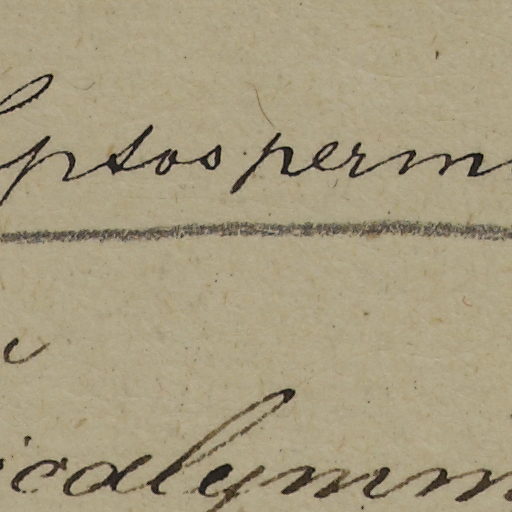 eptosperm
icalymm